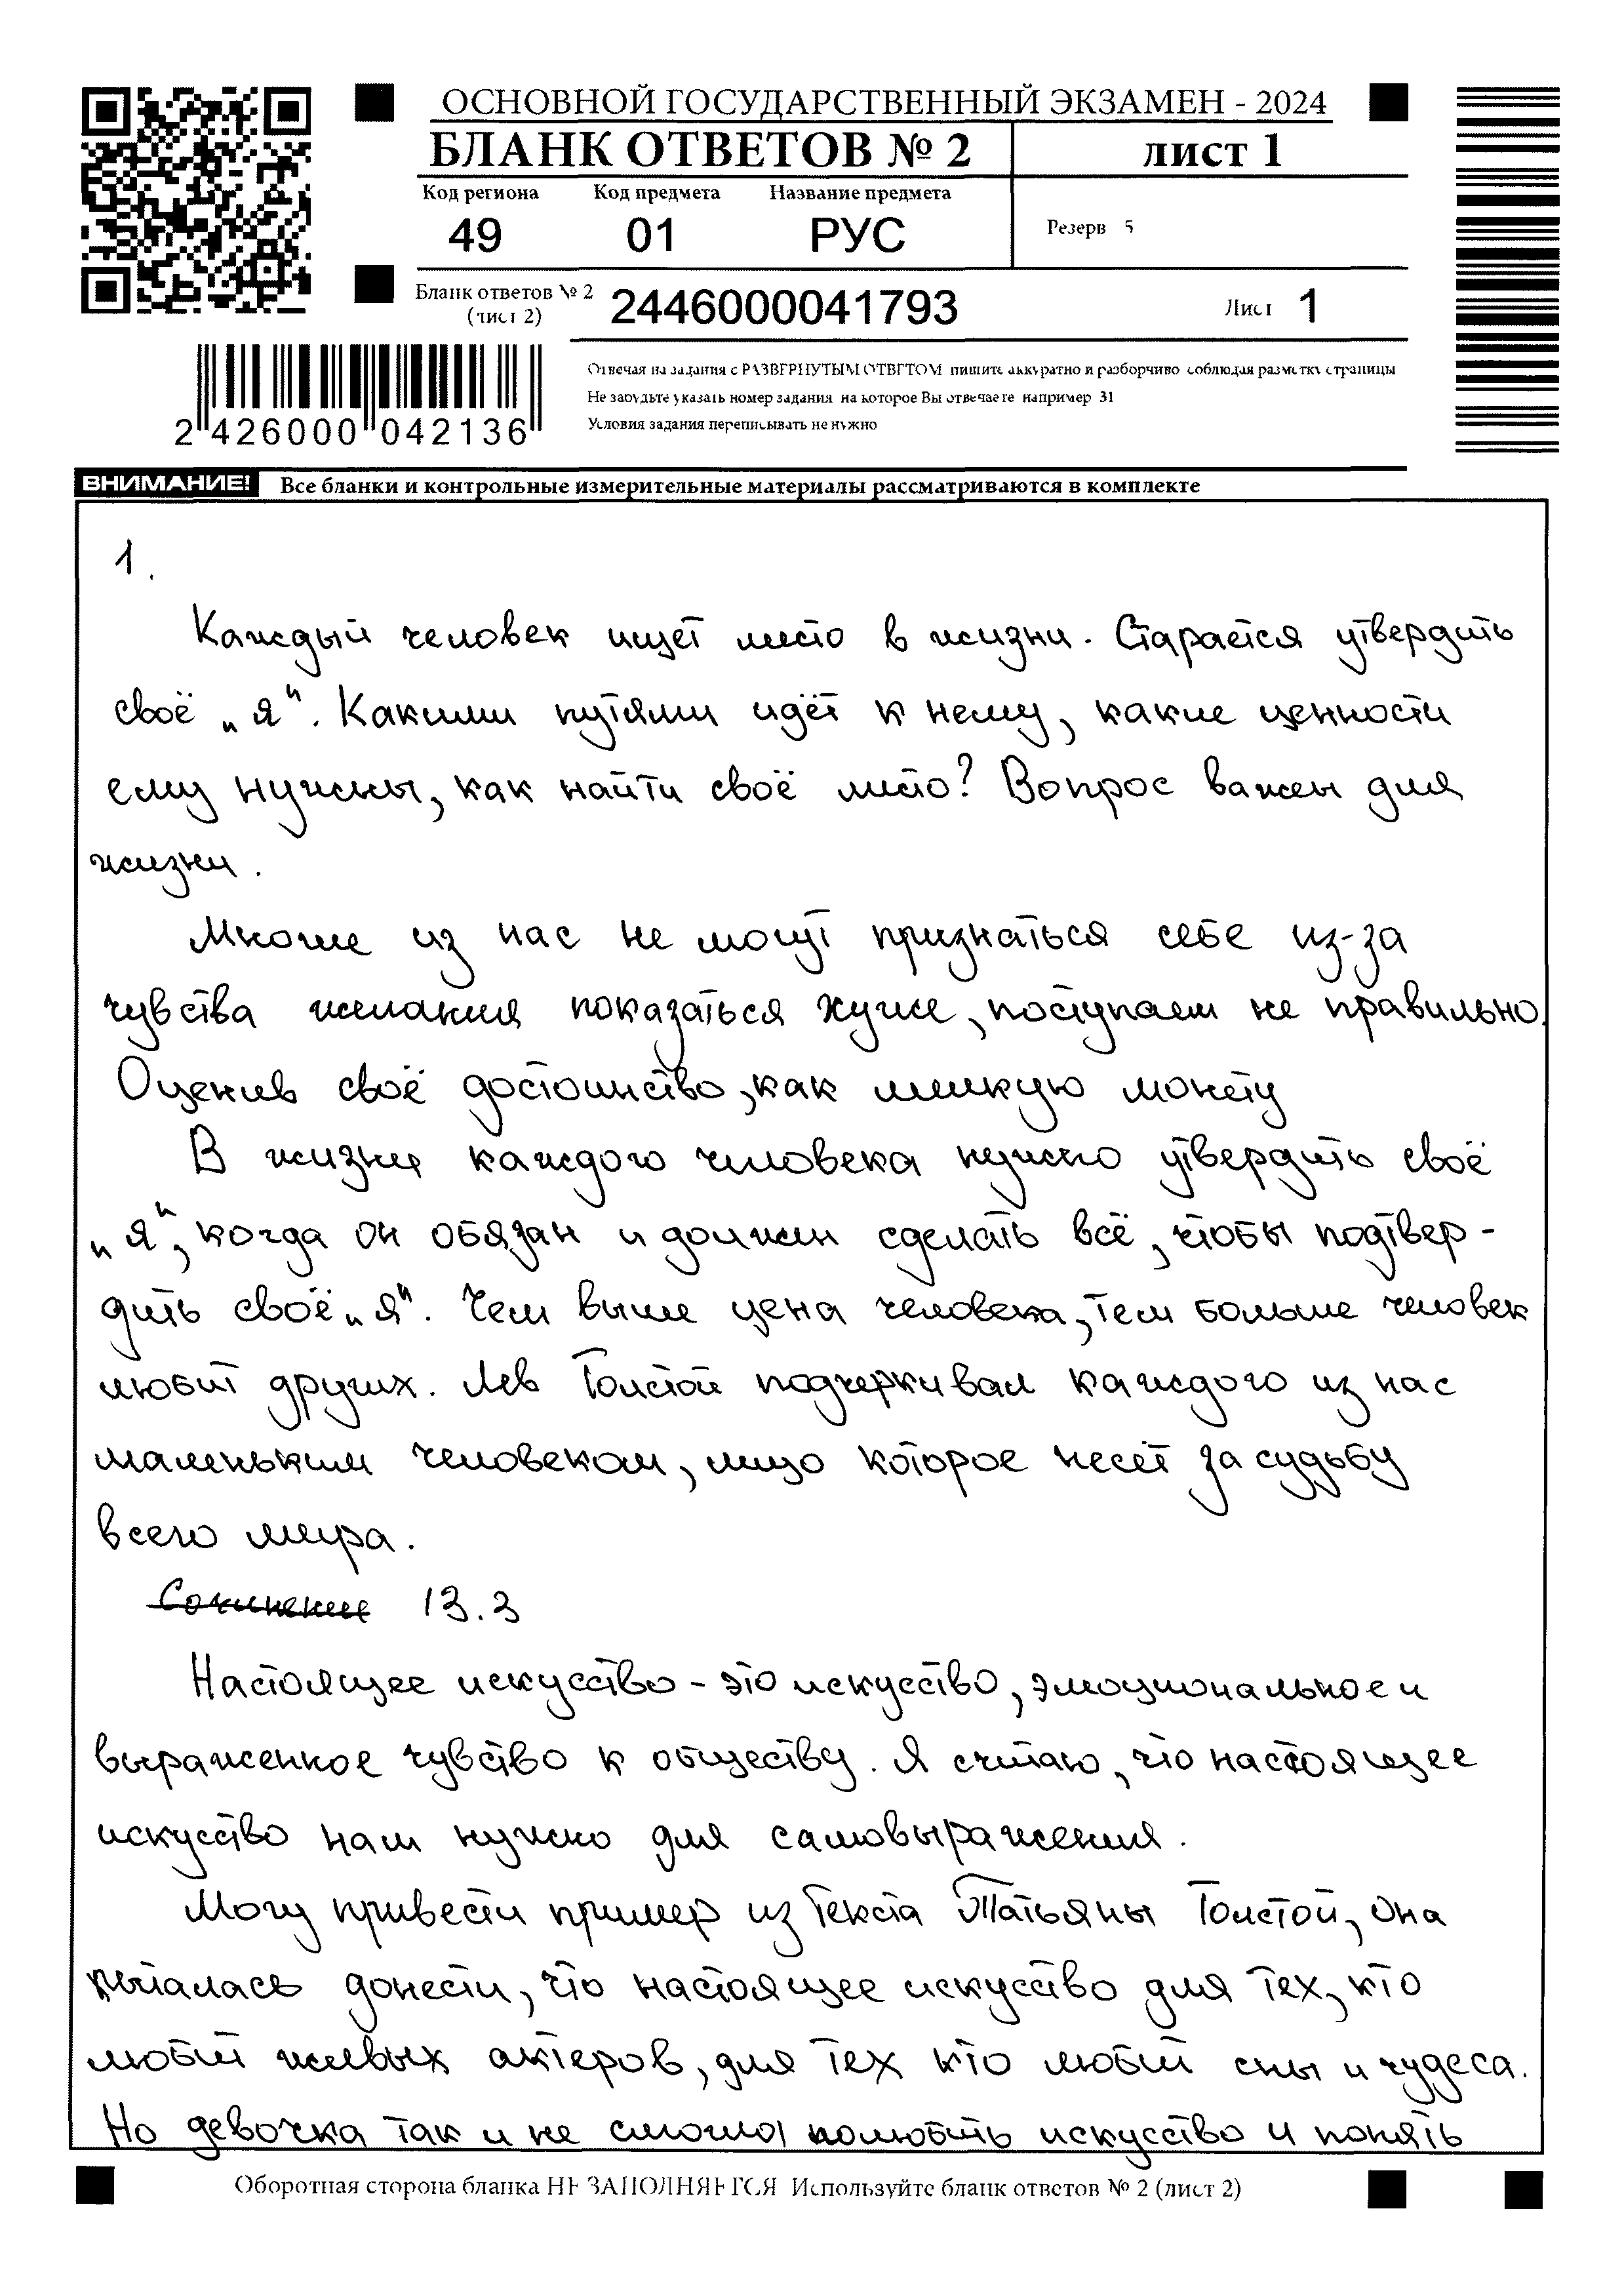 ОСНОВНОЙ ГОСУДАРСТВЕННЫЙ ЭКЗАМЕН - 2024
БЛАНК ОТВЕТОВ № 2
лист 1
Код региона Код предмета Название предмета
49 01 РУС
Резерв 5
Бланк ответов № 2
(лист 2)
2446000041793
Лист 1
2 426000 042136
Отвечая на задания с РАЗВЕРНУТЫМ ОТВЕТОМ пишите аккуратно и разборчиво соблюдая разметку страницы
Не забудьте указать номер задания на которое Вы отвечаете например 31
Условия задания переписывать не нужно
ВНИМАНИЕ! Все бланки и контрольные измерительные материалы рассматриваются в комплекте
1.
Каждый человек ищет место в жизни. Старается утвердить
своё „я“. Какими путями идёт к нему, какие ценности
ему нужны, как найти своё место? Вопрос важен для
жизни.
Многие из нас не могут признаться себе из-за
чувства желания показаться хуже, поступаем не правильно.
Оценив своё достоинство, как мелкую монету
В жизни каждого человека нужно утвердить своё
„я“, когда он обязан и должен сделать всё, чтобы подтвер-
дить своё „я“. Чем выше цена человека, тем больше человек
любит других. Лев Толстой подчеркивал каждого из нас
маленьким человеком, лицо которое несет за судьбу
всего мира.
Сочинение 13.3
Настоящее искусство - это искусство, эмоциональное и
выраженное чувство к обществу. Я считаю, что настоящее
искусство нам нужно для самовыражения.
Могу привести пример из текста Татьяны Толстой, она
пыталась донести, что настоящее искусство для тех, кто
любит живых актеров, для тех кто любит сны и чудеса.
Но девочка так и не смогла полюбить искусство и понять
Оборотная сторона бланка НЕ ЗАПОЛНЯЕТСЯ Используйте бланк ответов № 2 (лист 2)